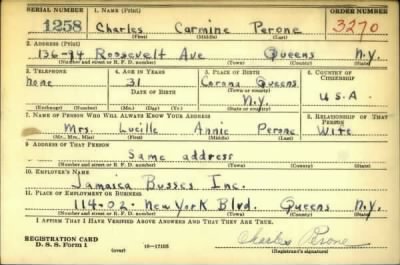 SERIAL NUMBER 1. NAME (Print) ORDER NUMBER
1258 Charles Carmine Perone 3270
(First) (Middle) (Last)
2. ADDRESS (Print)
136-14 Roosevelt Ave Queens N.Y.
(Number and street or R. F. D. number) (Town) (County) (State)
3. TELEPHONE 4. AGE IN YEARS 5. PLACE OF BIRTH 6. COUNTRY OF CITIZENSHIP
None 31 Corona Queens
DATE OF BIRTH (Town or county)
N.Y. U.S.A.
(Exchange) (Number) (Mo.) (Day) (Yr.) (State or country)
7. NAME OF PERSON WHO WILL ALWAYS KNOW YOUR ADDRESS 8. RELATIONSHIP OF THAT PERSON
Mrs. Lucille Annie Perone Wife
(Mr., Mrs., Miss) (First) (Middle) (Last)
9. ADDRESS OF THAT PERSON
Same address
(Number and street or R. F. D. number) (Town) (County) (State)
10. EMPLOYER'S NAME
Jamaica Busses Inc.
11. PLACE OF EMPLOYMENT OR BUSINESS
114-02 New York Blvd. Queens N.Y.
(Number and street or R. F. D. number) (Town) (County) (State)
I AFFIRM THAT I HAVE VERIFIED ABOVE ANSWERS AND THAT THEY ARE TRUE.
REGISTRATION CARD
D. S. S. Form 1 (over) 16—17105 Charles Perone
(Registrant's signature)